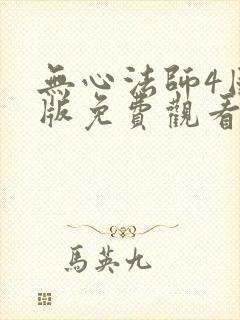 無心法師4
版免費觀看
馬英九